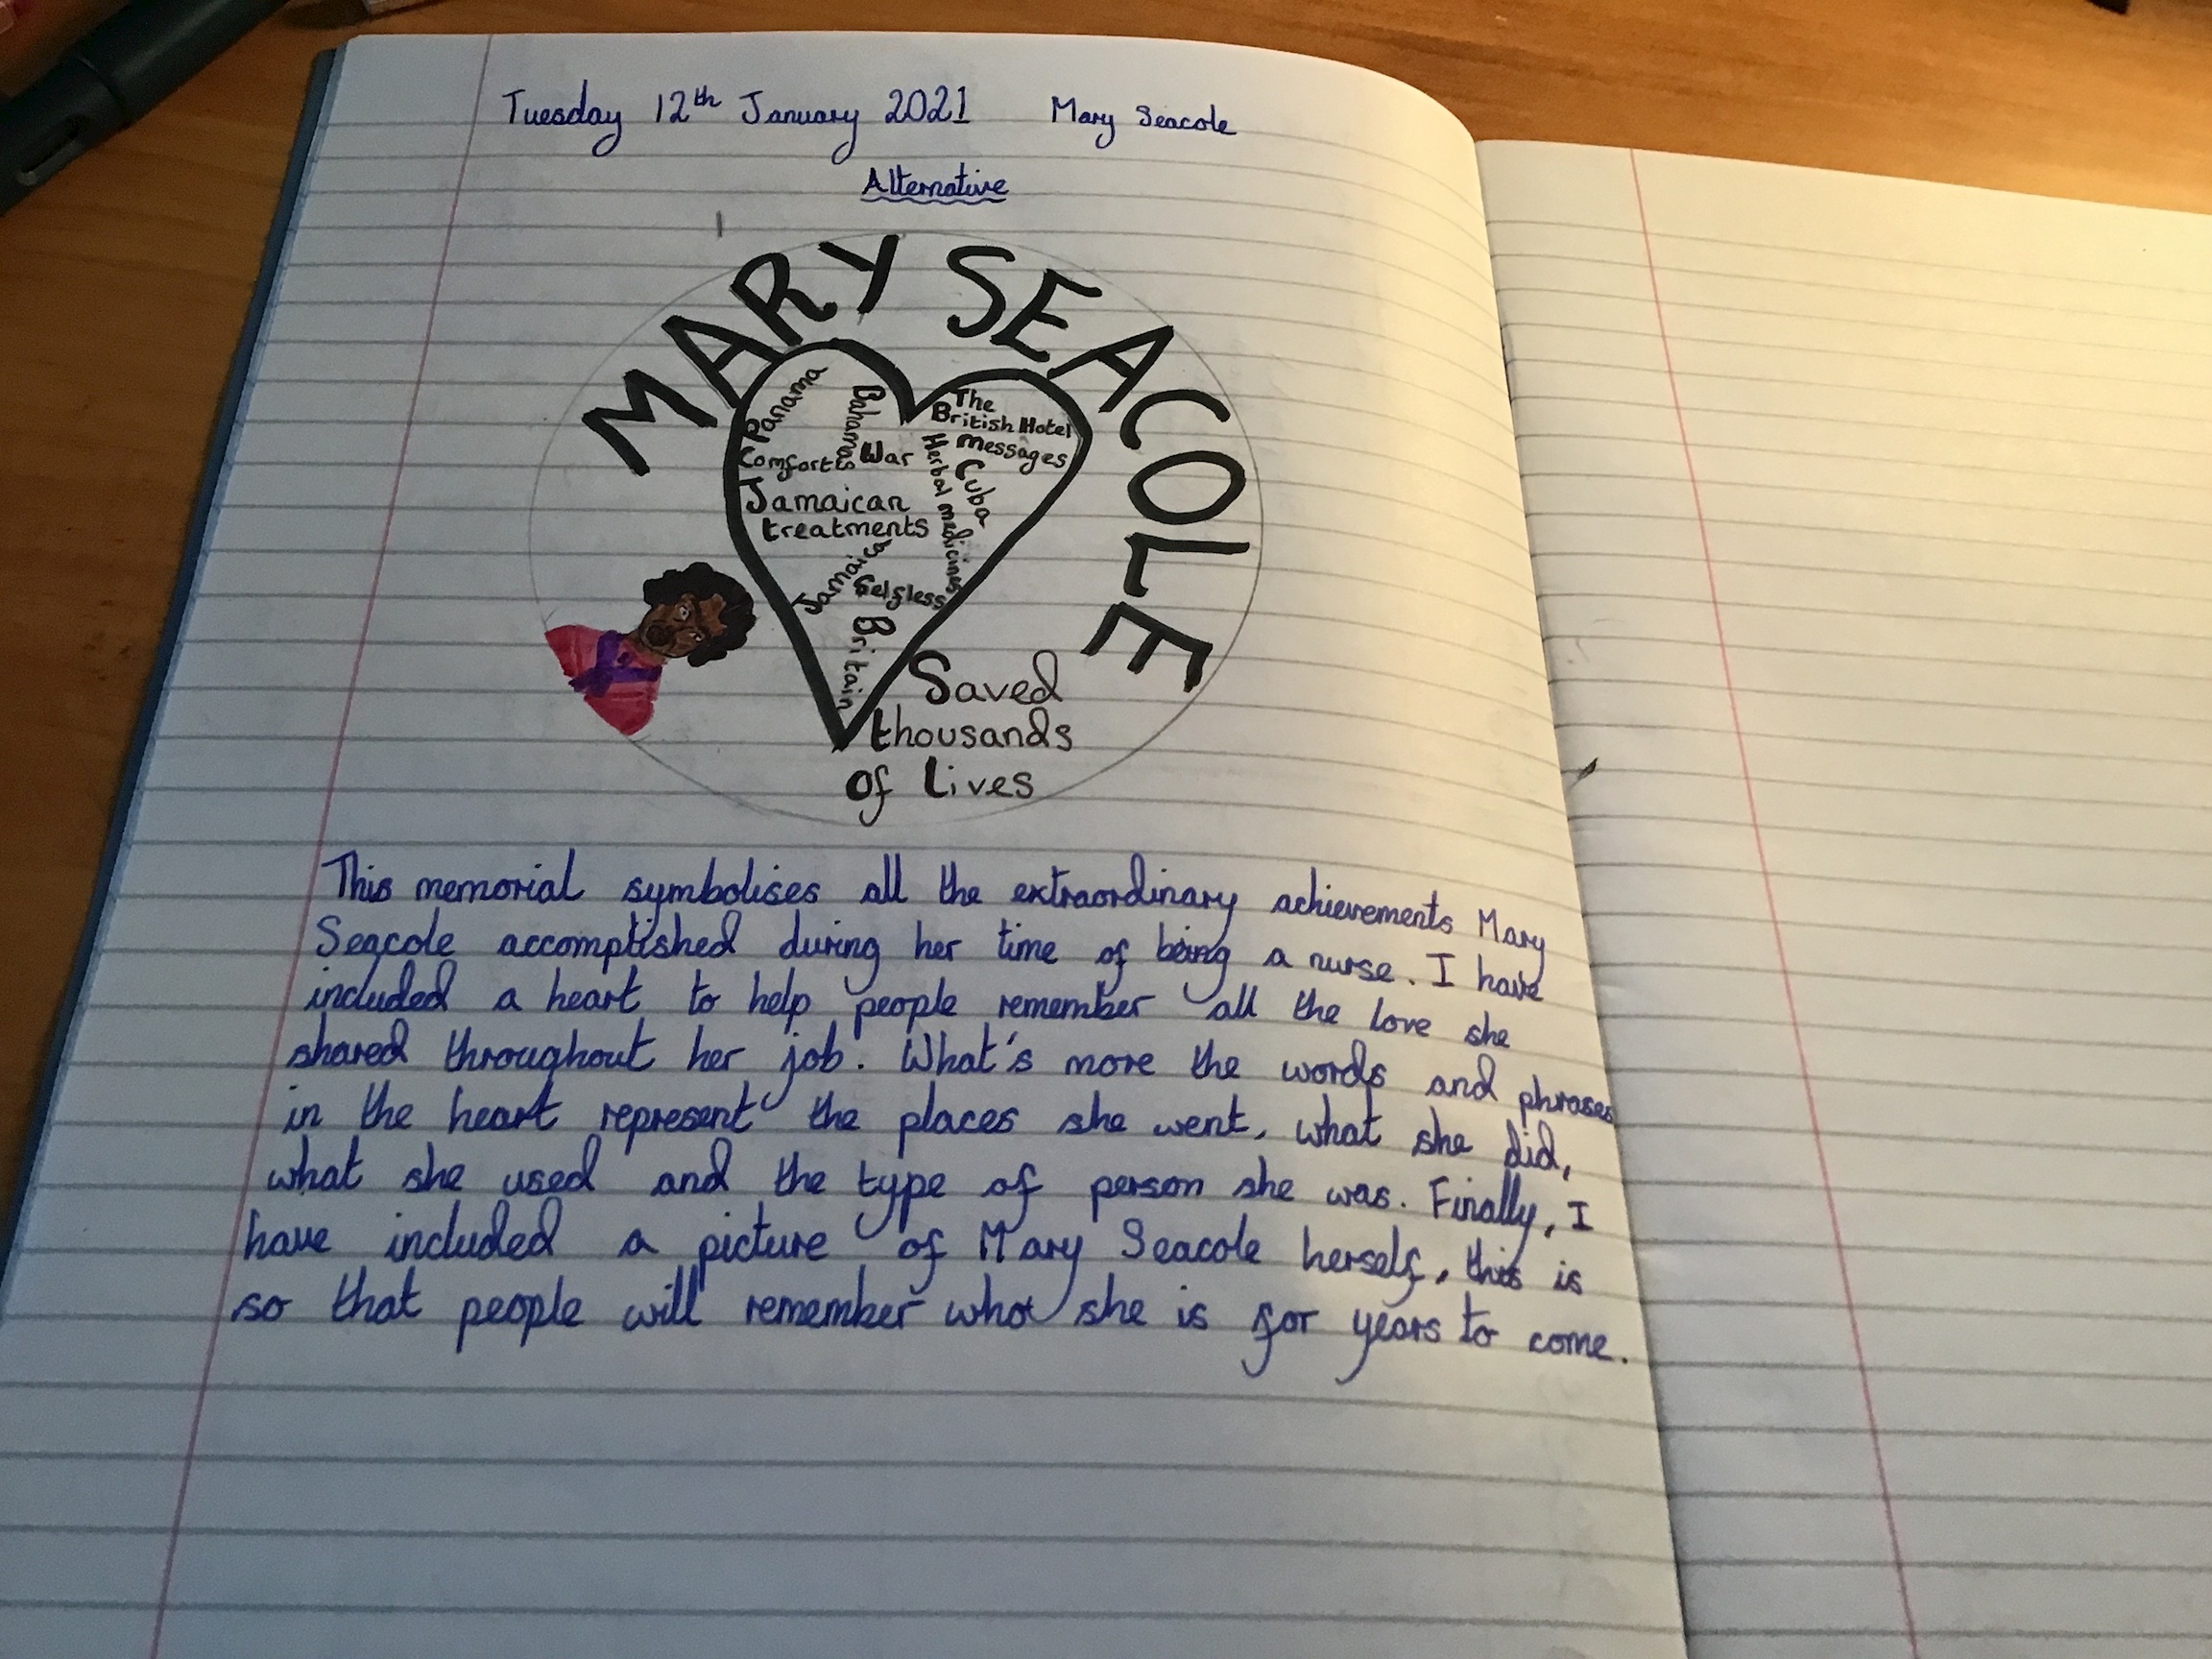 Tuesday 12th January 2021 Mary Seacole
Alternative
MARY SEACOLE
Panama
Bahamas
The
British Hotel
messages
Comforts
War
Cuba
Herbal medicines
Jamaican
treatments
Jamaica
Selfless
Britain
Saved
thousands
of lives
This memorial symbolises all the extraordinary achievements Mary
Seacole accomplished during her time of being a nurse. I have
included a heart to help people remember all the love she
shared throughout her job. What's more the words and phrases
in the heart represent the places she went, what she did,
what she used and the type of person she was. Finally, I
have included a picture of Mary Seacole herself, this is
so that people will remember who she is for years to come.